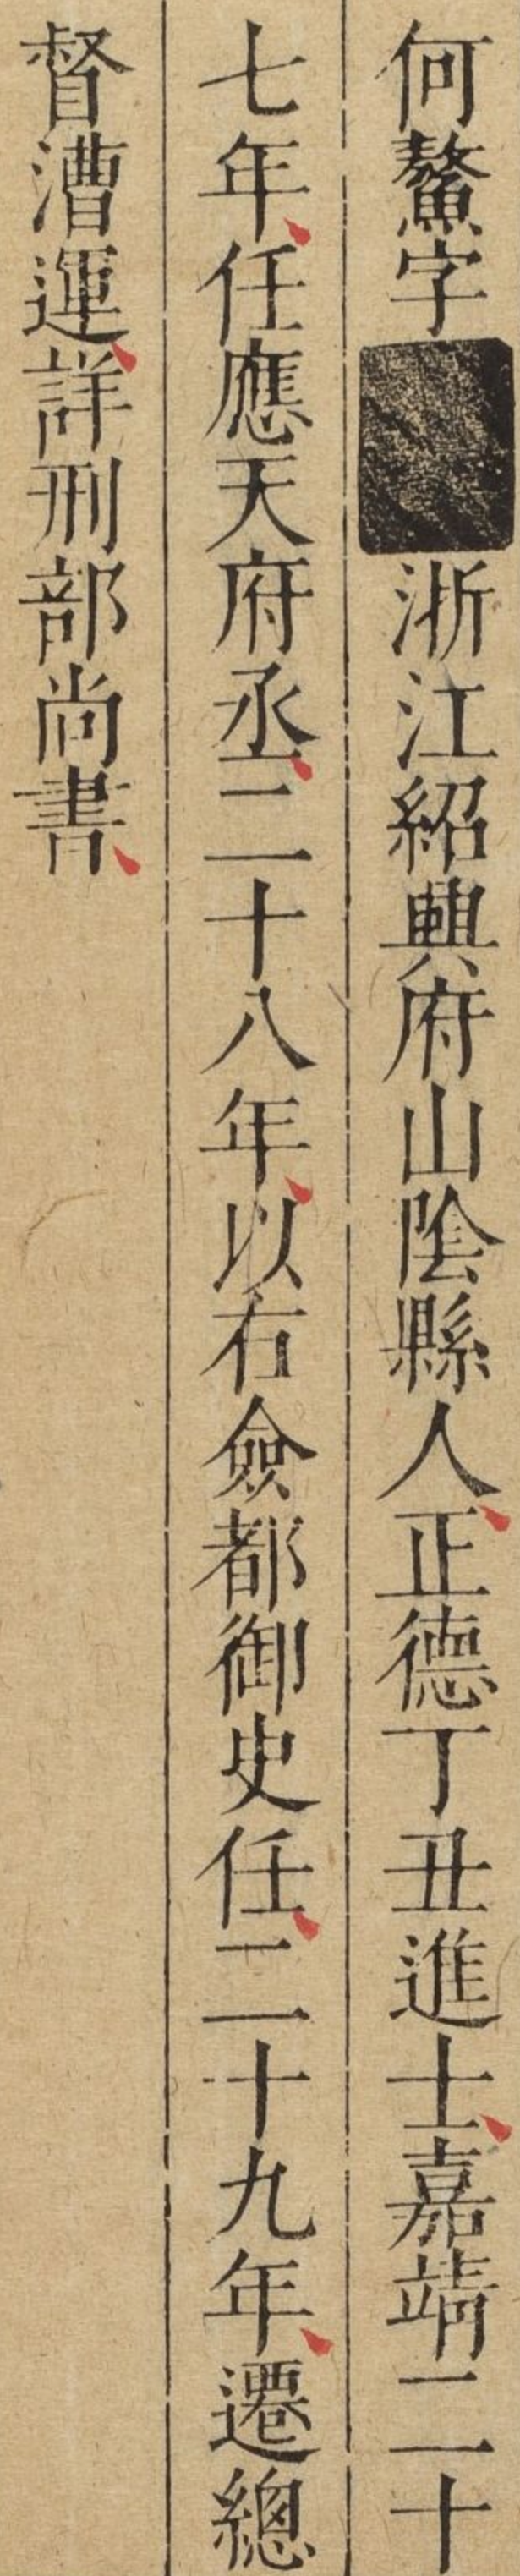 何鰲字浙江紹興府山陰縣人正德丁丑進士嘉靖二十
七年任應天府丞二十八年以右僉都御史任二十九年遷總
督漕運詳刑部尚書